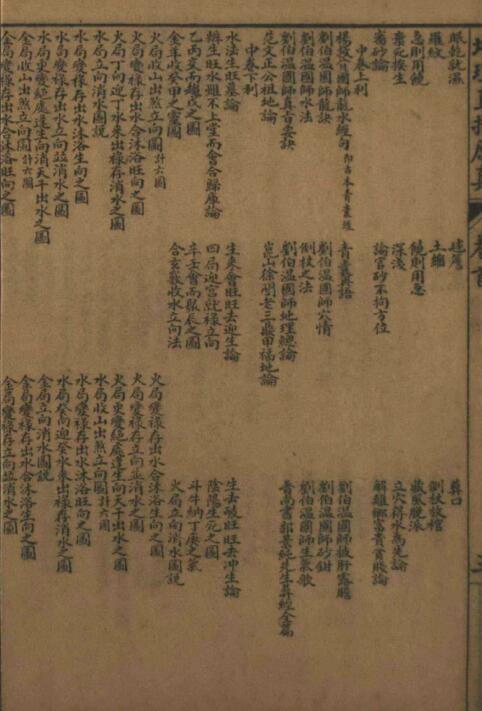 眼乾就濕 建鷹 葬口
羅紋 土縮 剜杖放棺
急則用饒 饒則用急 藏風脫派
棄死挨生 深淺 立穴得水為先論
審砂論 論官砂不拘方位 解雄鄉富貴貧賤論
中卷上利
楊救貧國師龍水經句即古本青囊經 青囊奥語 劉伯溫國師披肝露膽
劉伯溫國師龍訣 劉伯溫國師穴情 劉伯溫國師砂鉗
劉伯溫國師水法 倒杖之法 劉伯溫國師生氣歌
劉伯溫國師真古要訣 劉伯溫國師地理總論 晉尚書郭景純先生葬經全篇
范文正公祖地論 崑山徐閣老三處甲福地論
中卷下利
水法生旺墓論 生來會旺旺去迎生論 生去破旺旺去冲生論
辨生旺水雖不上堂而會合歸庫論 四局迎宮就祿立向 陰陽生死之圖
乙丙交而趨戌之圖 辛壬會而聚辰之圖 斗牛納丁庚之氣
金羊收癸甲之靈圖 合玄竅收水立向法 火局立向消水圖説
火局收山出煞立向圖計六圖
火局變祿存出水合沐浴旺向之圖 火局變祿存出水合沐浴生向之圖
火局丁向迎丁水來出祿存消水之圖 火局變祿存立向並消水之圖
水局立向消水圖説 火局更變絕處逢生向天干出水之圖
水局變祿存出水沐浴生向之圖 水局收山出煞立向圖計六圖
水局變祿存出水立向並消水之圖 水局變祿存出水沐浴旺向之圖
水局更變絕處逢生向消天干出水之圖 水局癸向迎癸水來出祿存消水之圖
金局收山出煞立向圖計六圖 金局立向消水圖説
金局變祿存出水合沐浴旺向之圖 金局變祿存出水合沐浴生向之圖
金局變祿存立向並消水之圖